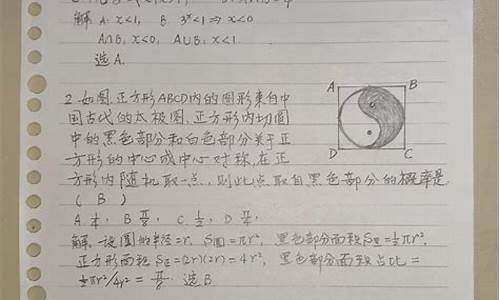 解 A: x<1, B: 3ˣ<1 ⇒ x<0
A∩B: x<0, A∪B: x<1.
选 A.
2. 如图,正方形ABCD内的图形来自中
国古代的太极图,正方形内切圆
中的黑色部分和白色部分关于正
方形的中心成中心对称,在正
方形内随机取一点,则此点取自黑色部分的概率是
( B )
A. ¼, B π/8, C. ½, D π/4,
解,设圆的半径=r, S圆=πr², 黑色部分面积S黑=½πr²,
正方形面积S正=(2r)(2r)=4r², 黑色部分面积占比=
½πr²/4r² = π/8. 选B
A
B
D
C